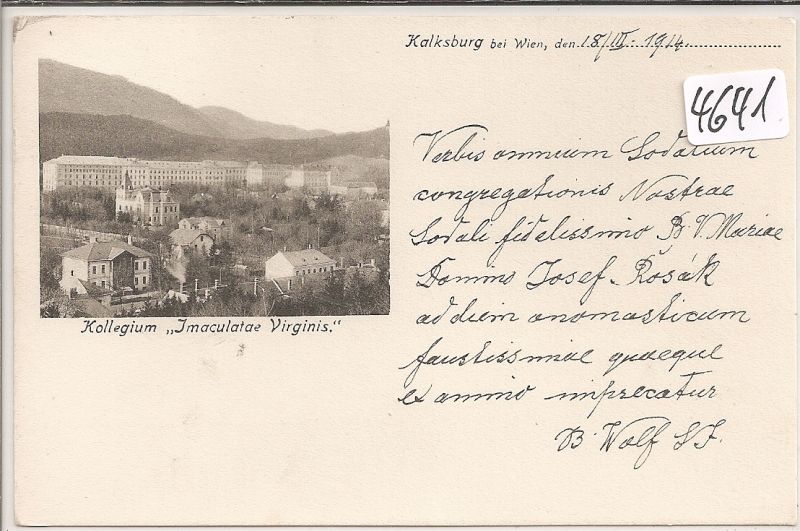 Kalksburg bei Wien, den 18/III. 1914.
4641
Verbis omnium Sodalium
congregationis Nostrae
Sodali fidelissimo B. V. Mariae
Domino Josef Rosák
ad diem onomasticum
faustissimae quaeque
ex animo imprecatur
B. Wolf S.J.
Kollegium „Imaculatae Virginis."